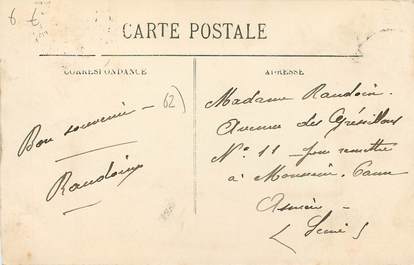 6 €
CARTE POSTALE
CORRESPONDANCE
ADRESSE
62)
Bon souvenir
Raudoin
Madame Raudoin.
Avenue des Grésillons
N° 11 pour remettre
à Monsieur
Asnières
(Seine)